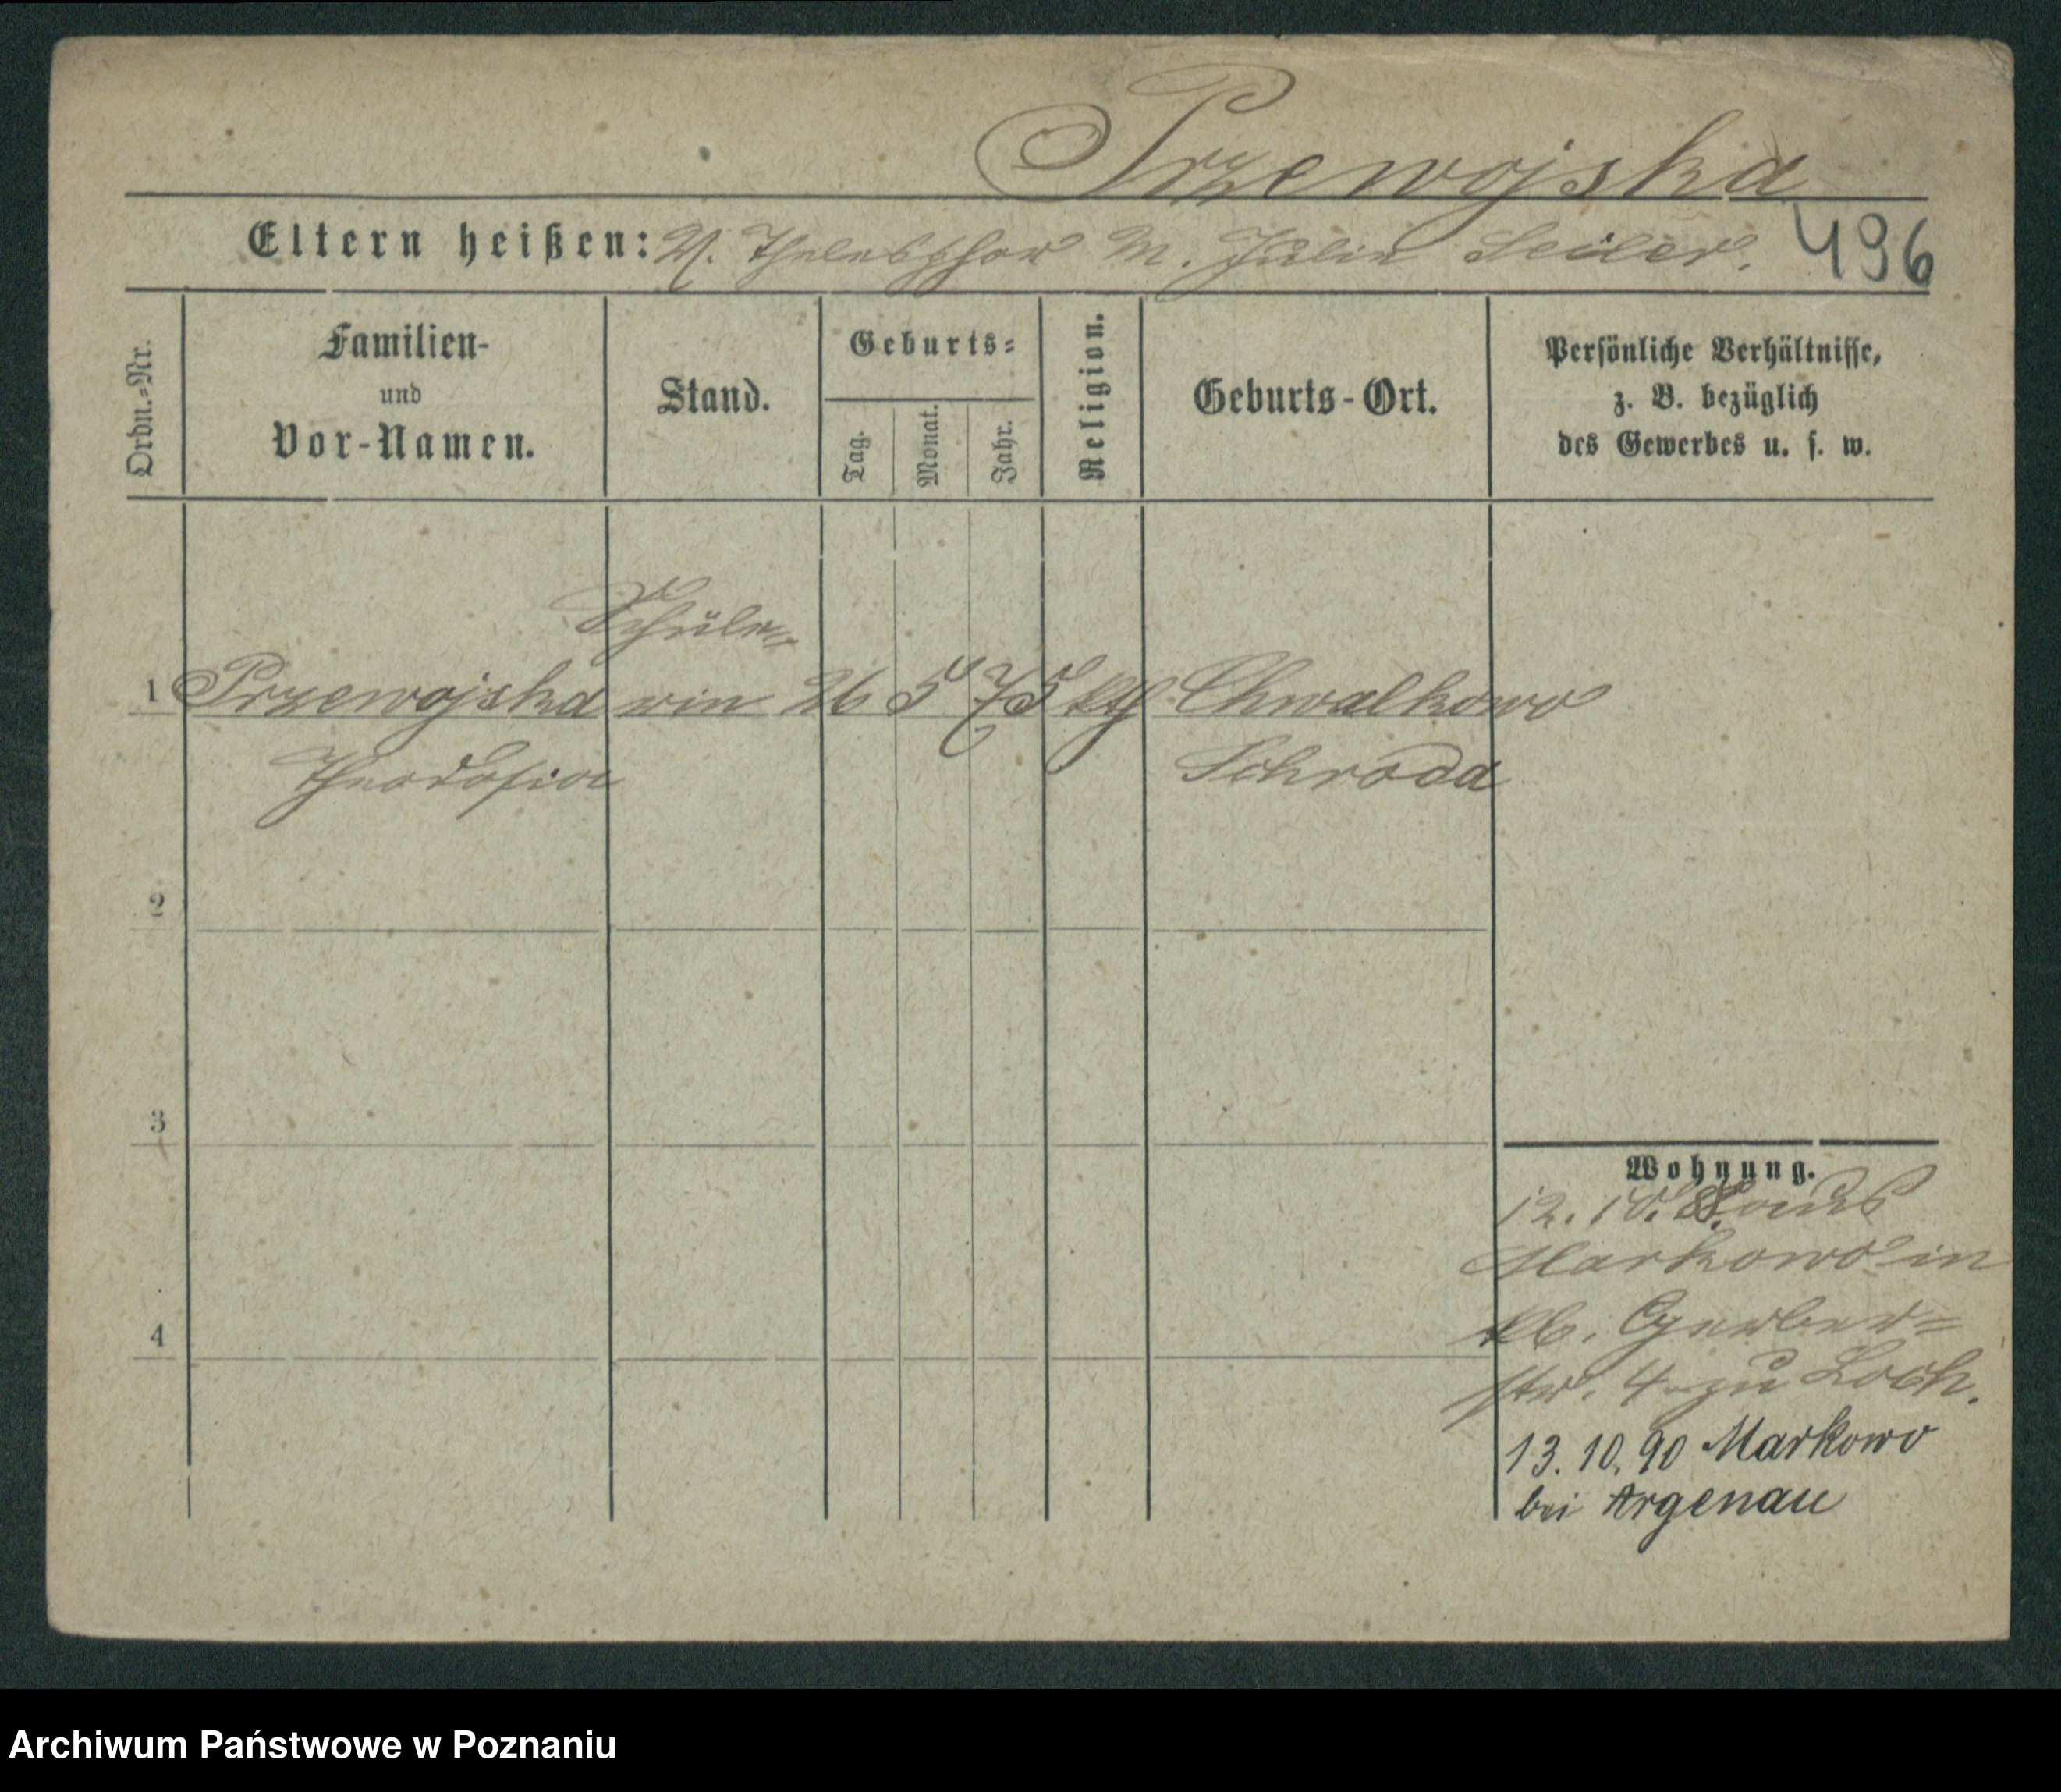 Przewojska
Eltern heißen: V. Thelesphor M. Julie Seiler.
496
Ordn.=Nr.
Familien-
und
Vor-Namen.
Stand.
Geburts=
Tag.
Monat.
Jahr.
Religion.
Geburts-Ort.
Persönliche Verhältnisse,
z. B. bezüglich
des Gewerbes u. s. w.
Schüle=
1 Przewojska rin 26 5 75 kth Chwalkowo
Theodosia Schroda
2
3
4
Wohnung.
12. 10. 88.
Markowo in
Gerber=
str. 4 zu Loch.
13. 10. 90 Markowo
bei Argenau
Archiwum Państwowe w Poznaniu